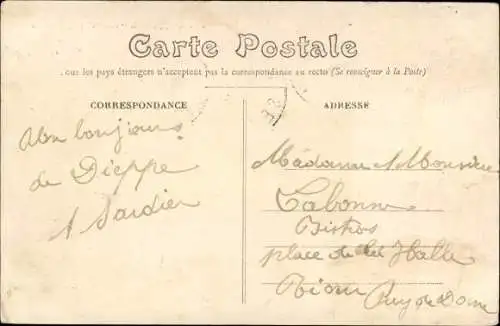 Carte Postale
ous les pays étrangers n'acceptent pas la correspondance au recto (Se renseigner à la Poste)
CORRESPONDANCE
bonjours
de Dieppe
A Sardier
ADRESSE
Madame Monsieur
Place de la Halle
Riom Puy de Dome